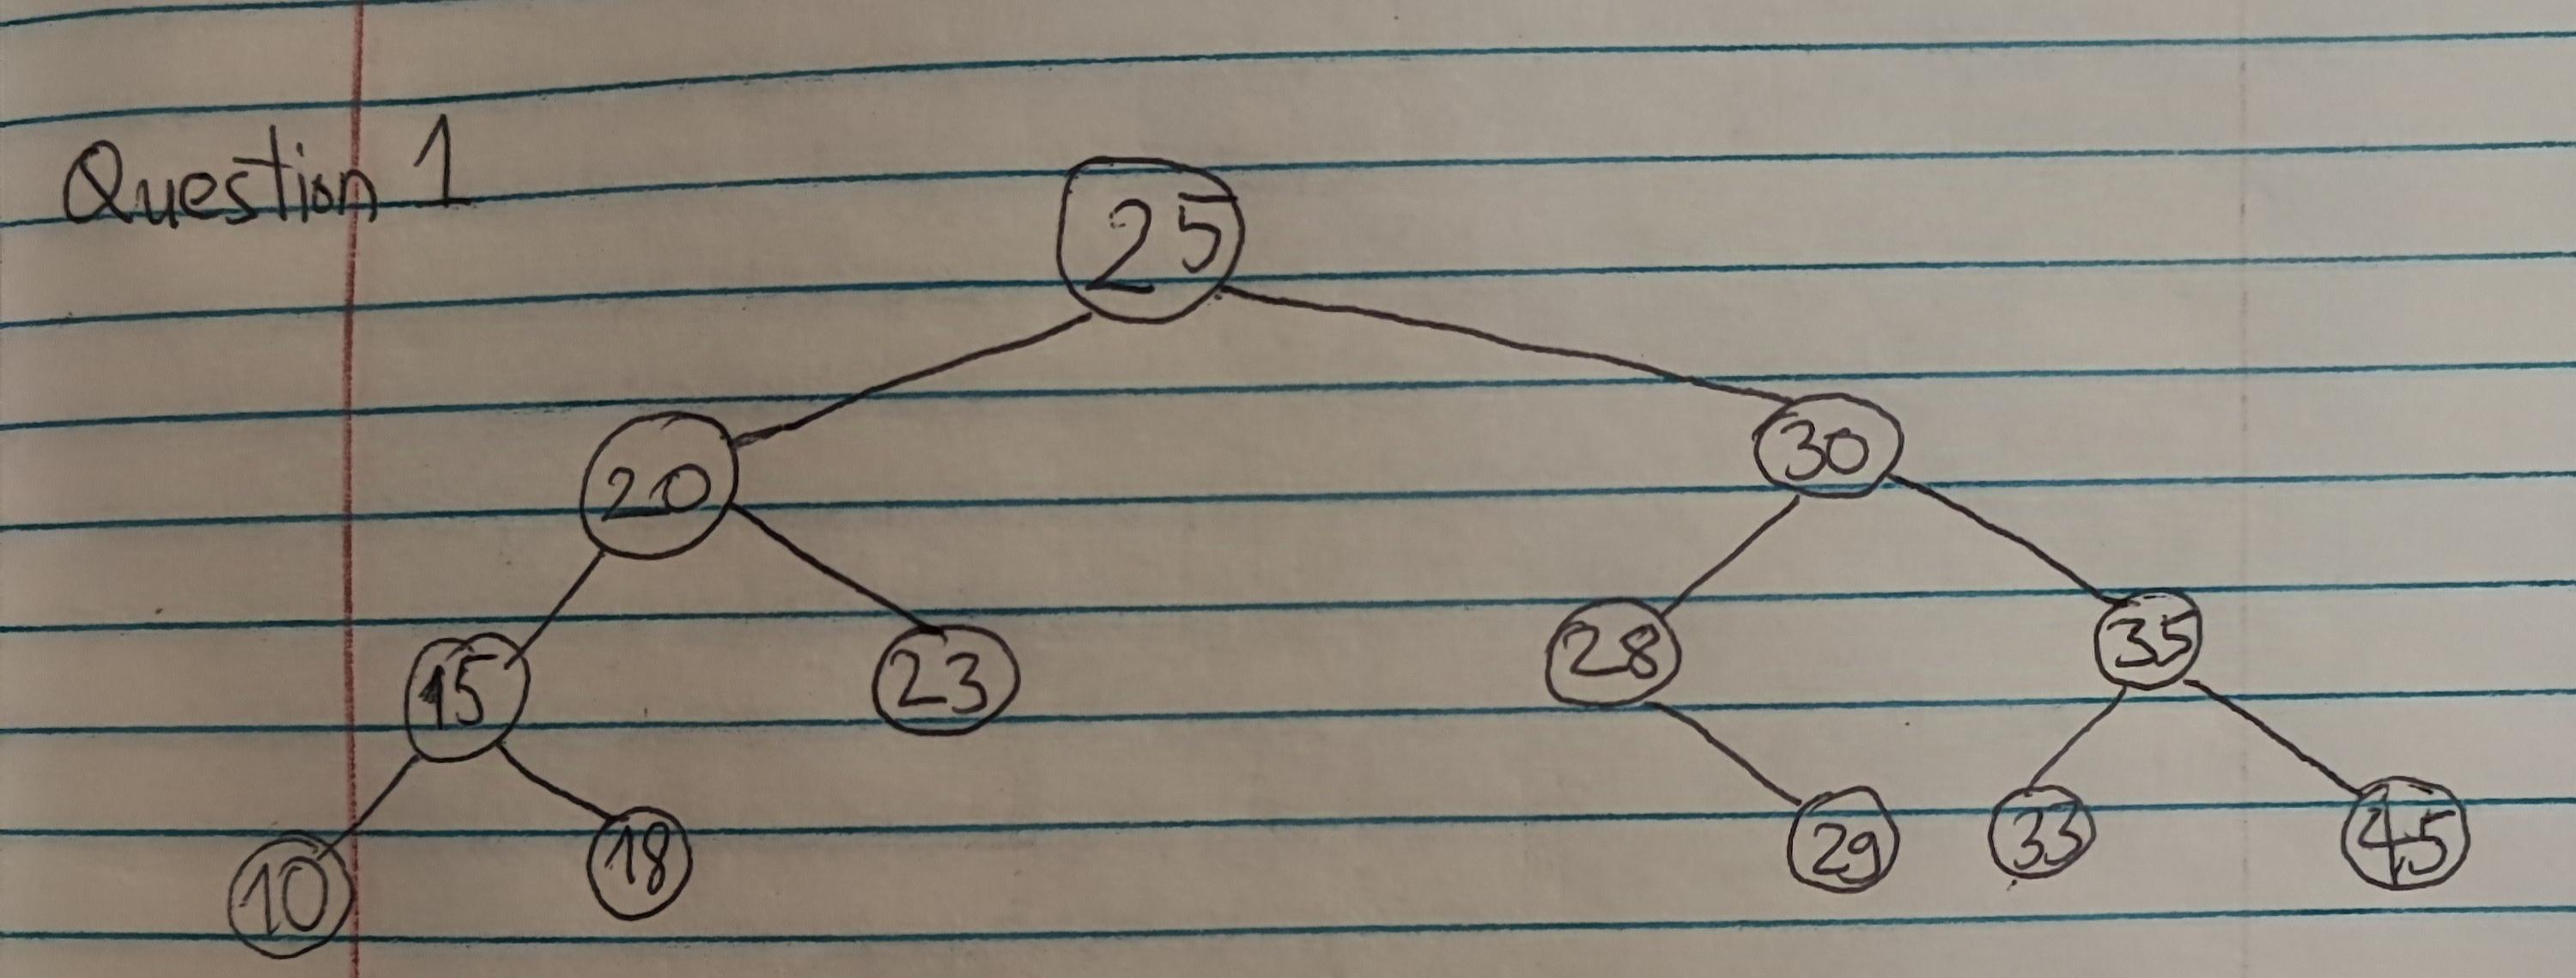 Question 1
25
20 30
15 23 28 35
10 18 29 33 45